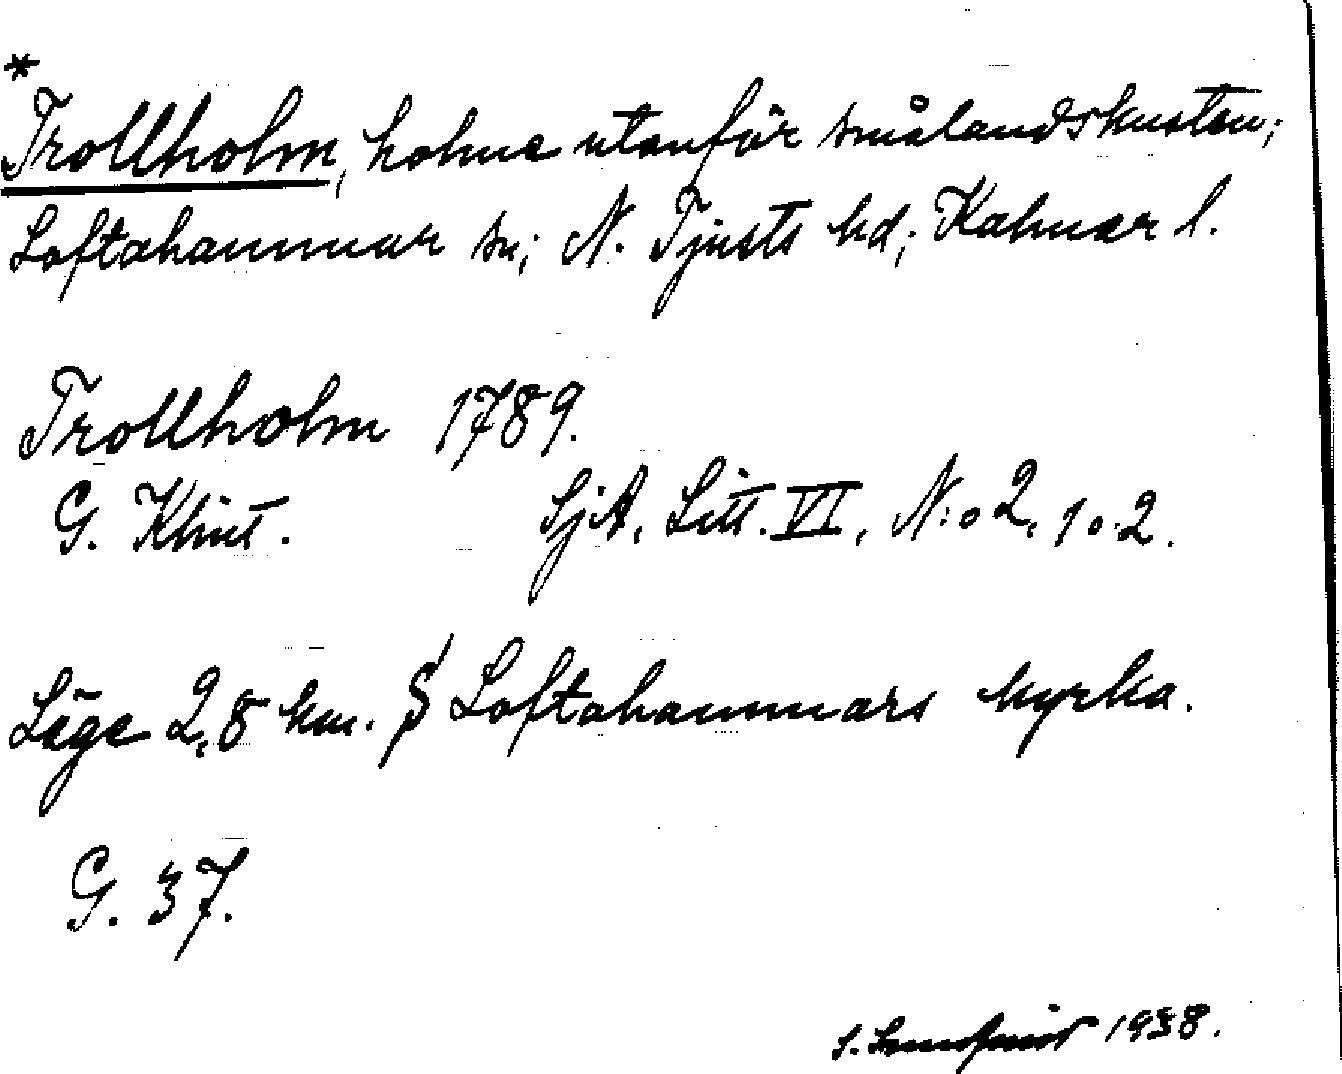 *
Trollholm, holme utanför smålandskusten;
Loftahammar sn; N. Tjusts hd; Kalmar l.
Trollholm 1789.
G. Klint. SjA, Litt. VI, N:o 2, 1 o. 2.
Läge 2,8 km. S Loftahammars kyrka.
G. 37.
S. 1938.